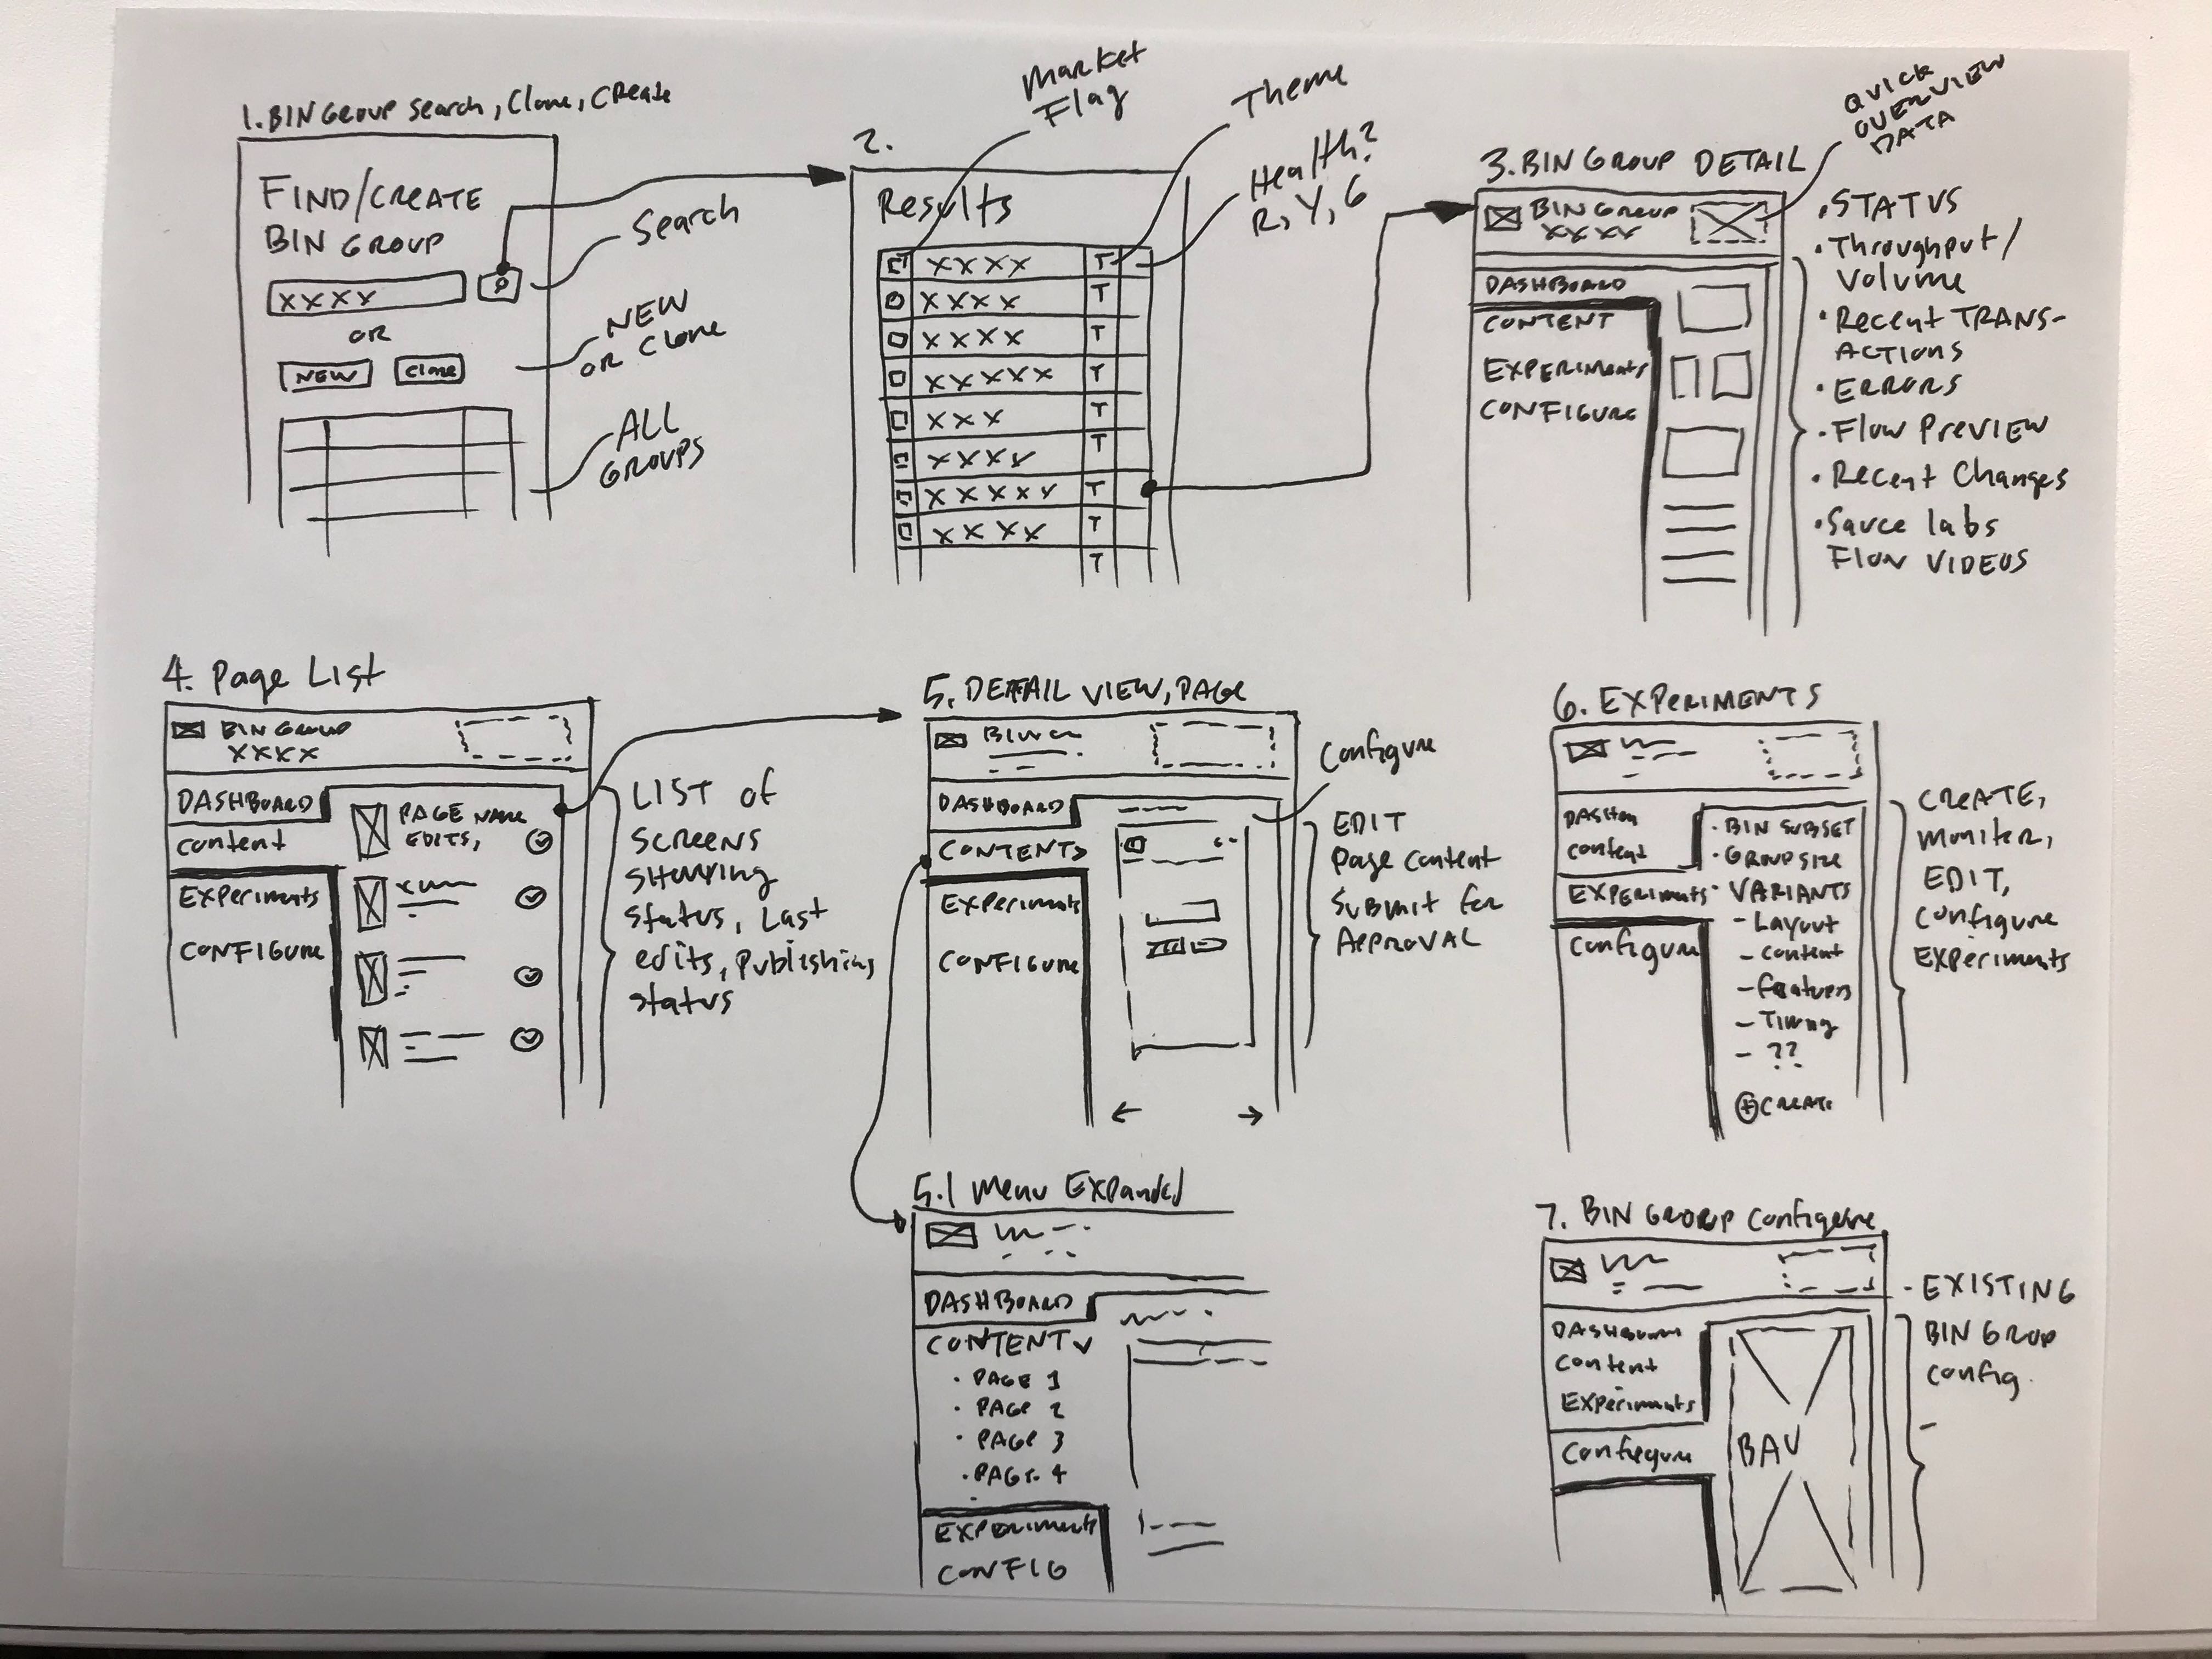 1. BIN GROUP Search, Clone, CREATE
FIND/CREATE
BIN GROUP
XXXX
OR
NEW
Clone
Search
NEW
OR Clone
ALL
GROUPS
2.
Market
Flag
Theme
Health?
R, Y, G
Results
XXXX T
XXXX T
XXXX T
XXXXX T
XXX T
XXXX T
XXXXX T
XXXX T
T
3. BIN GROUP DETAIL
QUICK
OVERVIEW
DATA
BIN GROUP
XXXX
DASHBOARD
CONTENT
EXPERIMENTS
CONFIGURE
• STATUS
• Throughput/
Volume
• Recent TRANS-
ACTIONS
• ERRORS
• Flow Preview
• Recent Changes
• Sauce labs
Flow VIDEOS
4. Page List
BIN GROUP
XXXX
DASHBOARD
Content
Experiments
CONFIGURE
PAGE NAME
EDITS,
LIST of
SCREENS
SHOWING
Status, Last
edits, Publishing
Status
5. DETAIL VIEW, PAGE
DASHBOARD
CONTENT>
Experiments
CONFIGURE
Configure
EDIT
Page Content
Submit for
APPROVAL
6. EXPERIMENTS
Content
EXPERIMENTS
Configure
• BIN SUBSET
• GROUP SIZE
• VARIANTS
- Layout
- Content
- Features
- Timing
- ??
+ CREATE
CREATE,
Moniter,
EDIT,
Configure
Experiments
5.1 Menu Expanded
DASHBOARD
CONTENT v
• PAGE 1
• PAGE 2
• PAGE 3
• PAGE 4
EXPERIMENTS
CONFIG
7. BIN GROUP Configure
DASHBOARD
Content
Experiments
Configure
BAU
- EXISTING
BIN GROUP
Config.
-